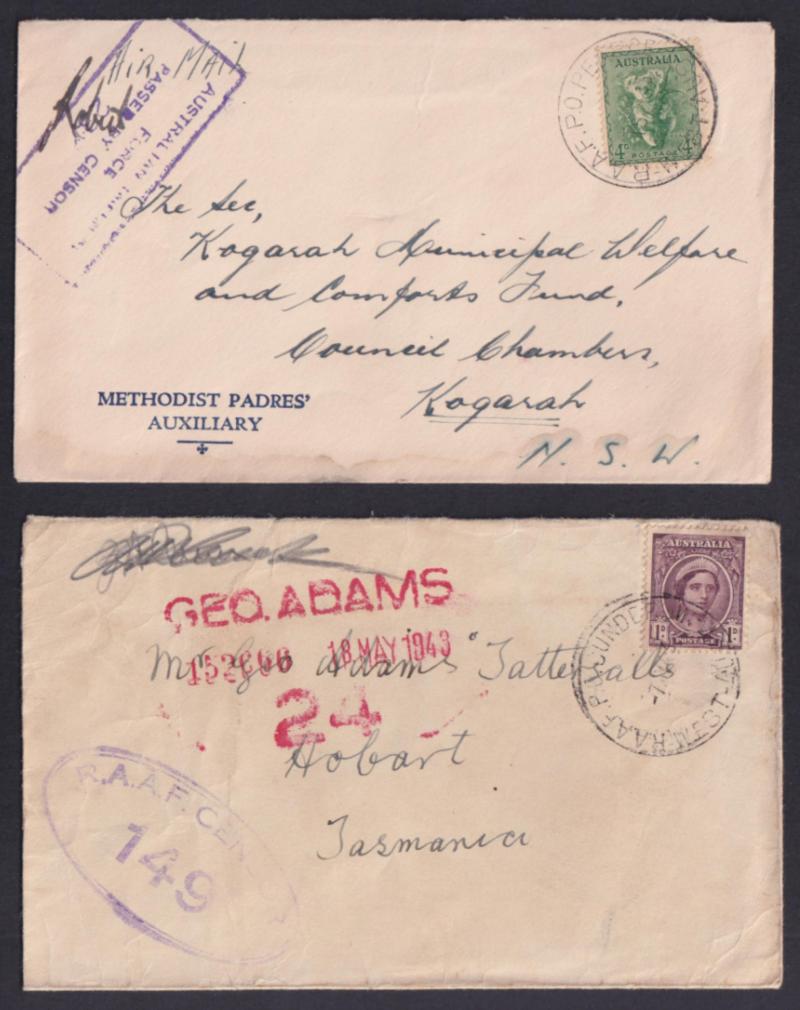 AIR MAIL
AUSTRALIAN
FORCE
PASSED BY CENSOR
AUSTRALIA
4D 4D
POSTAGE
R.A.A.F. P.O.
The Sec,
Kogarah Municipal Welfare
and Comforts Fund,
Council Chambers,
Kogarah
N. S. W.
METHODIST PADRES'
AUXILIARY
GEO. ADAMS
18 MAY 1943
24
AUSTRALIA
1D 1D
POSTAGE
R.A.A.F. P.O.
Mr Geo Adams "Tattersalls
Hobart
Tasmania
R.A.A.F. CENSOR
149